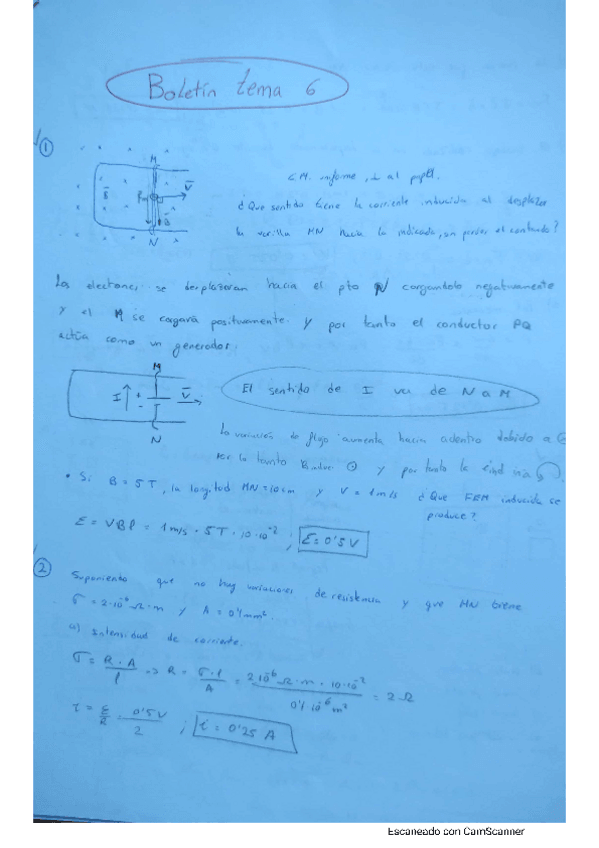 Boletín tema 6
①
M
B
V
N
C.M. uniforme, ⊥ al papel.
¿Que sentido tiene la corriente inducida al desplazar
la varilla MN hacia lo indicado, sin perder el contacto?
Los electrones se desplazaran hacia el pto N cargandolo negativamente
y el M se cargará positivamente. y por tanto el conductor PQ
actúa como un generador.
M
I
+
-
V
N
El sentido de I va de N a M
La variación de flujo aumenta hacia adentro debido a
Por lo tanto ⊙ y por tanto la
• Si B = 5 T, la longitud MN = 10 cm y V = 1 m/s ¿Que FEM inducida se
produce?
E = VBl = 1 m/s · 5 T · 10·10⁻² ; E = 0'5 V
②
Suponiento que no hay variaciones de resistencia y que MN tiene
σ = 2·10⁻⁶ Ω·m y A = 0'1 mm².
a) Intensidad de corriente.
σ = R·A / l => R = σ·l / A = 2·10⁻⁶ Ω·m · 10·10⁻² / 0'1·10⁻⁶ m² = 2 Ω
i = E / R = 0'5 V / 2 ; i = 0'25 A
Escaneado con CamScanner